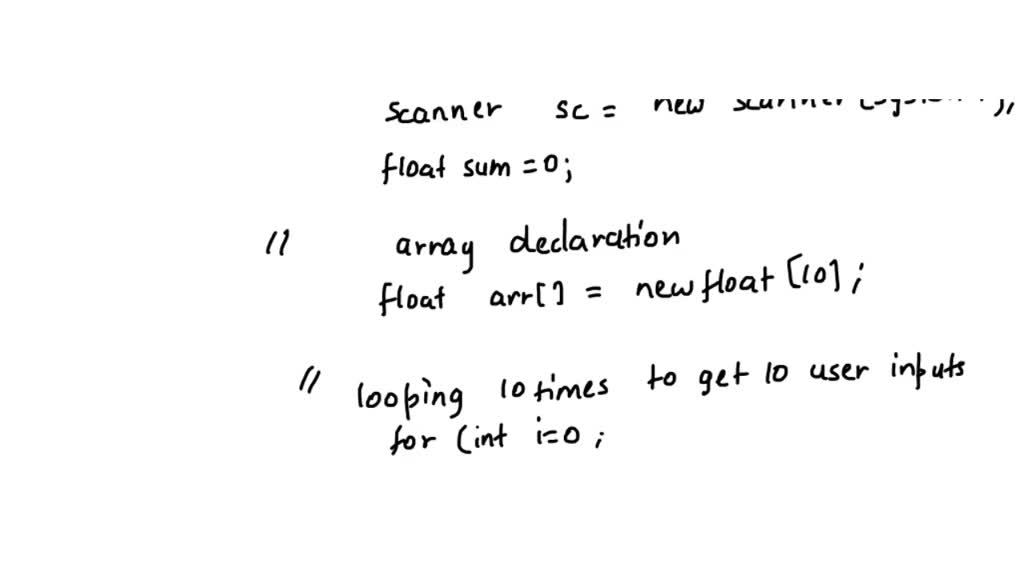 scanner sc = new scanner
float sum = 0;
// array declaration
float arr[] = new float [10];
// looping 10 times to get 10 user inputs
for (int i=0;